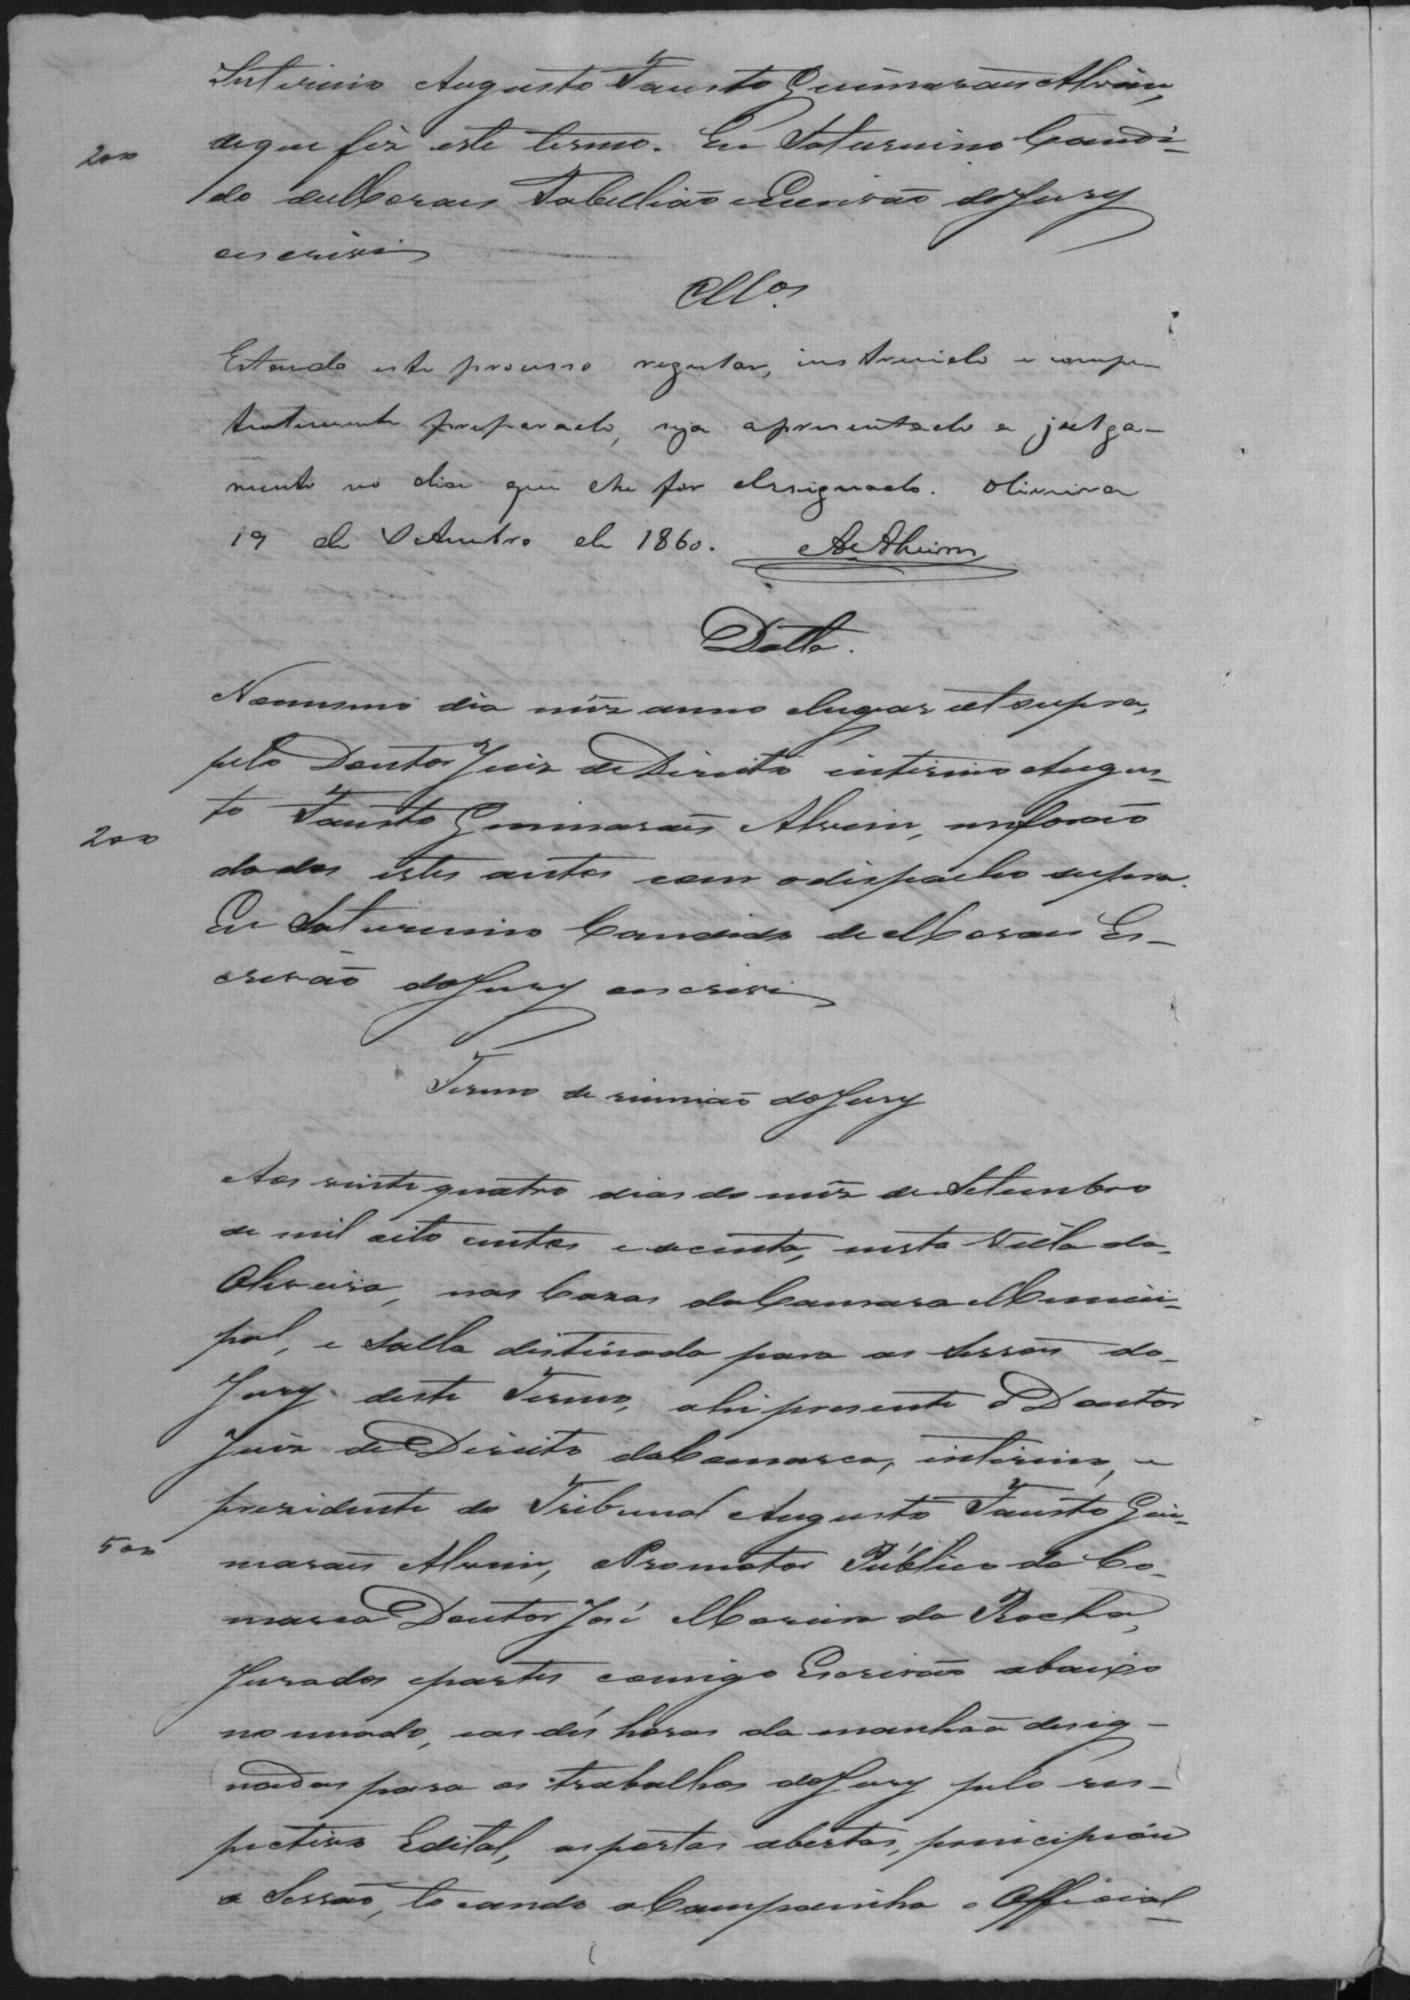 Interino Augusto Fausto Guimarães Alvim,
200
de que fiz este termo. Eu Saturnino Candi-
do de Moraes Tabellião e Escrivão do Jury
escrivi
Cllos
Estando este processo regular, instruido e compe-
tentemente preparado, seja apresentado a julga-
mento no dia que lhe for designado. Oliveira
19 de Setembro de 1860. Alvim
Datta.
No mesmo dia mêz anno e lugar ut supra,
pelo Doutor Juiz de Direito interino Augus-
to Fausto Guimarães Alvim, me forão
200
dados estes autos com o dispacho supra.
Eu Saturnino Candido de Moraes Es-
crivão do Jury escrivi
Termo de riunião do Jury
Aos vinte quatro dias do mêz de Setembro
de mil oito centos e secenta, nesta Villa da
Oliveira, nas Cazas da Camara Munici-
pal, e Salla distinada para as Sessões do
Jury deste Termo, ahi presente o Doutor
Juiz de Direito da Comarca, interino, e
prezidente do Tribunal Augusto Fausto Gui-
500
marães Alvim, o Promotor Público da Co-
marca Doutor José Moreira da Rocha,
Jurados e partes comigo Escrivão abaixo
nomeado, e as dés horas da manhãa desig-
nadas para os trabalhos do Jury pelo res-
pectivo Edital, as portas abertas, principiou
a Sessão, tocando a Campainha o Official